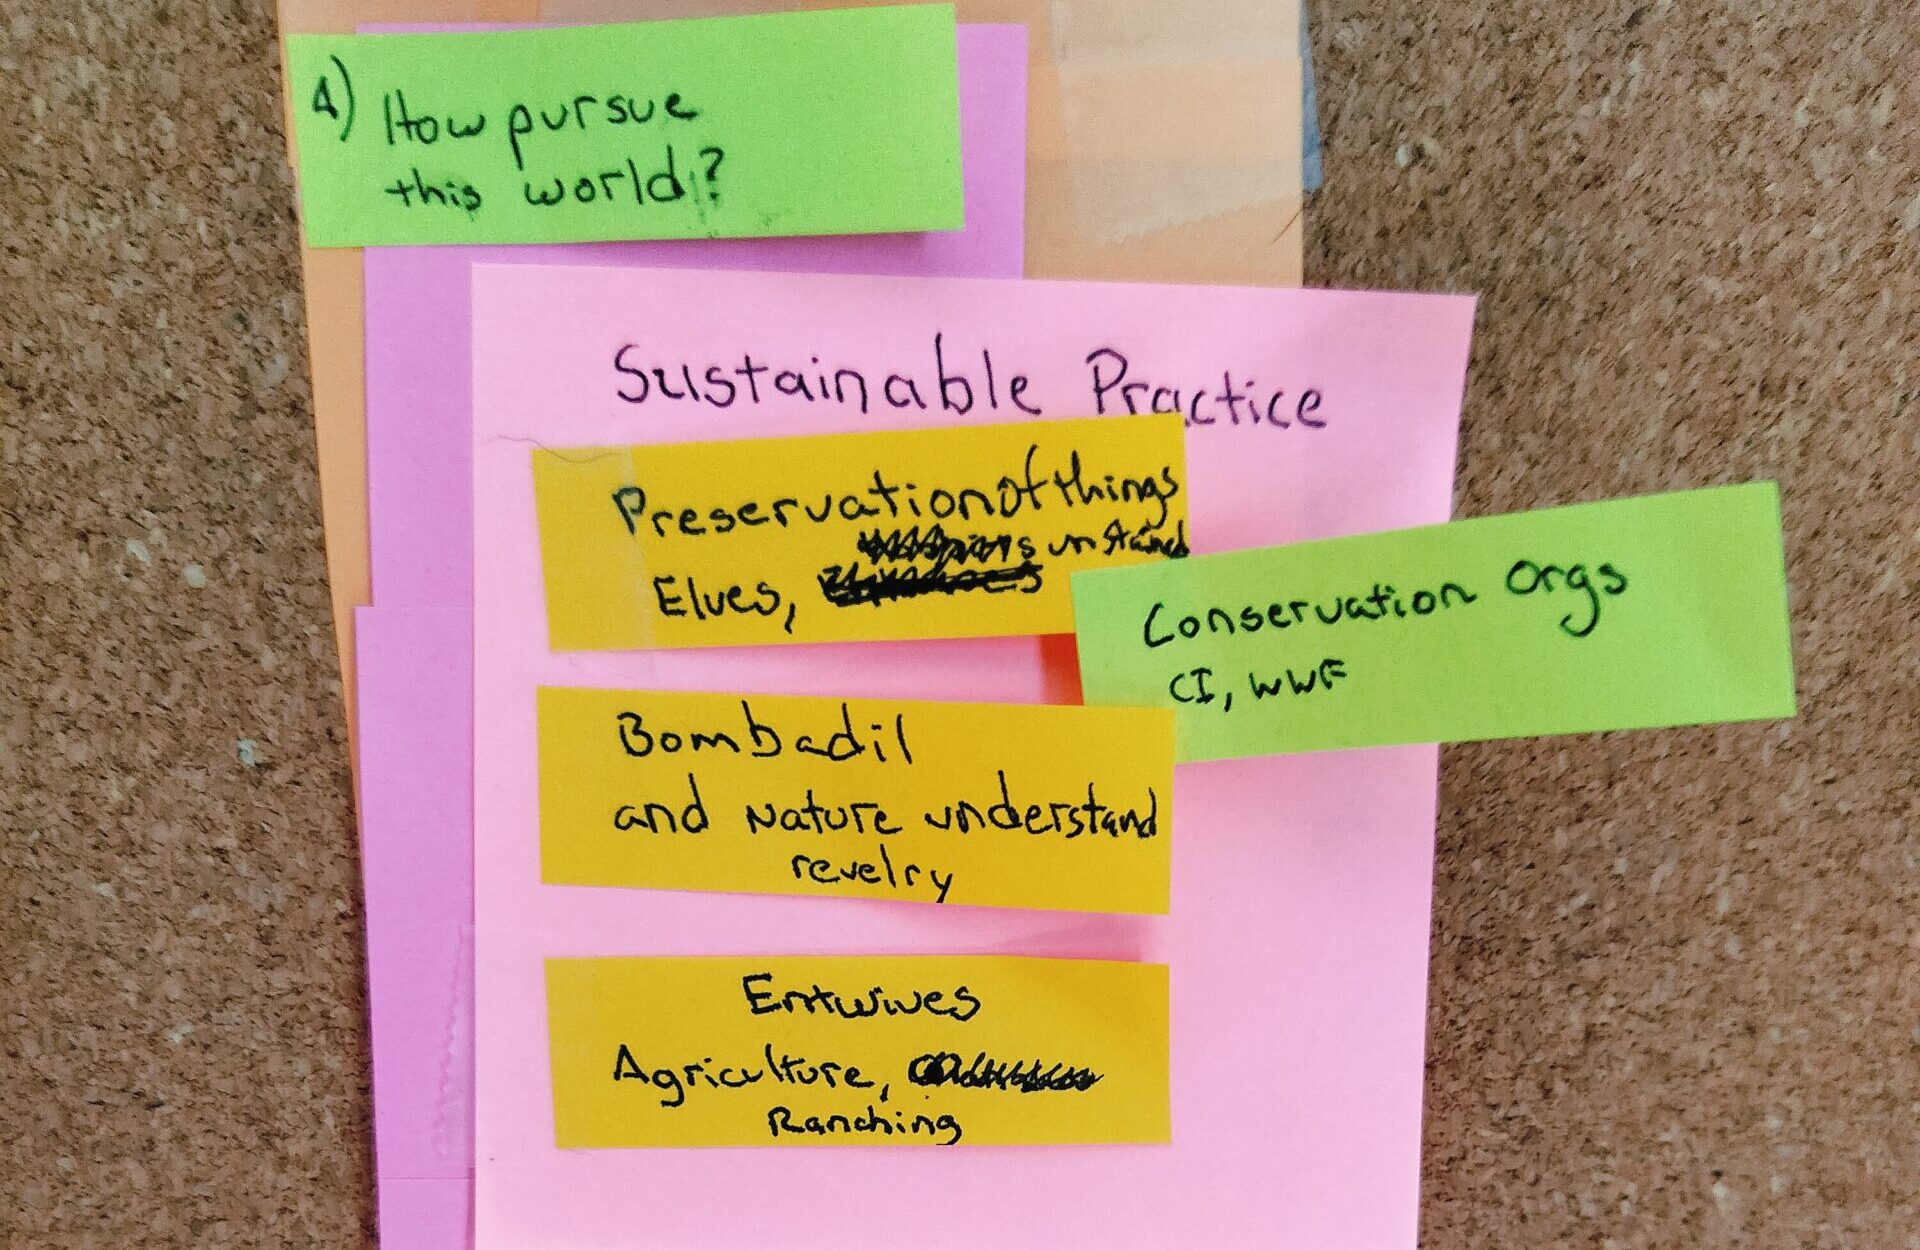 4) How pursue
this world?
Sustainable Practice
Preservation of things
unstained
Elves,
Conservation Orgs
CI, WWF
Bombadil
and Nature understand
revelry
Entwives
Agriculture,
Ranching